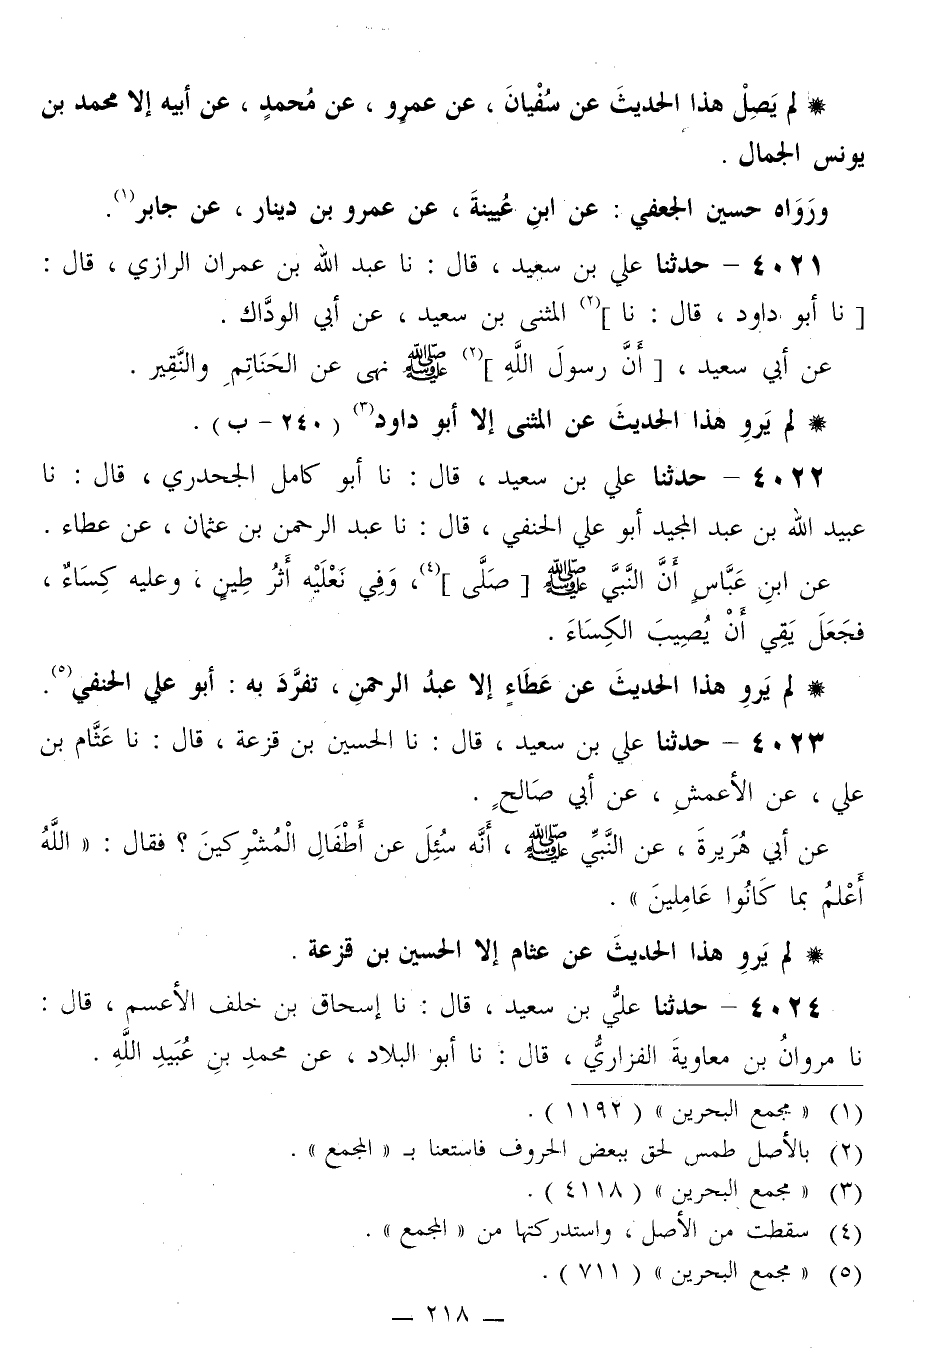 * لم يَصِلْ هذا الحديثَ عن سُفْيانَ ، عن عمرٍو ، عن مُحمدٍ ، عن أبيه إلا محمد بن
يونس الجمال .
ورَوَاه حسين الجعفي : عن ابنِ عُيينةَ ، عن عمرو بن دينار ، عن جابر(١).
٤٠٢١ – حدثنا علي بن سعيد ، قال : نا عبد الله بن عمران الرازي ، قال :
[ نا أبو داود ، قال : نا ](٢) المثنى بن سعيد ، عن أبي الودَّاك .
عن أبي سعيد ، [ أَنَّ رسولَ اللَّهِ ](٢) ﷺ نهى عن الحَنَاتِمِ والنَّقِير .
* لم يَروِ هذا الحديثَ عن المثنى إلا أبو داود(٣) ( ٢٤٠ – ب ) .
٤٠٢٢ – حدثنا علي بن سعيد ، قال : نا أبو كامل الجحدري ، قال : نا
عبيد الله بن عبد المجيد أبو علي الحنفي ، قال : نا عبد الرحمن بن عثمان ، عن عطاء .
عن ابنِ عَبَّاسٍ أَنَّ النَّبيَّ ﷺ [ صَلَّى ](٤)، وَفِي نَعْلَيْه أَثرُ طِينٍ ، وعليه كِسَاءٌ ،
فجَعَلَ يَقِي أَنْ يُصِيبَ الكِسَاءَ .
* لم يَروِ هذا الحديثَ عن عَطَاءٍ إلا عبدُ الرحمنِ ، تفرَّدَ به : أبو علي الحنفي(٥).
٤٠٢٣ – حدثنا علي بن سعيد ، قال : نا الحسين بن قزعة ، قال : نا عَثَّام بن
علي ، عن الأعمشِ ، عن أبي صَالحٍ .
عن أبي هُرَيرةَ ، عن النَّبيِّ ﷺ ، أَنَّه سُئِلَ عن أَطْفَالِ الْمُشْرِكينَ ؟ فقال : « اللَّهُ
أَعْلمُ بما كَانُوا عَامِلينَ » .
* لم يَروِ هذا الحديثَ عن عثام إلا الحسين بن قزعة .
٤٠٢٤ – حدثنا عليُّ بن سعيد ، قال : نا إسحاق بن خلف الأعسم ، قال :
نا مروانُ بن معاويةَ الفزاريُّ ، قال : نا أبو البلاد ، عن محمدِ بنِ عُبَيدِ اللَّهِ .
(١) « مجمع البحرين » ( ١١٩٢ ) .
(٢) بالأصل طمس لحق ببعض الحروف فاستعنا بـ « المجمع » .
(٣) « مجمع البحرين » ( ٤١١٨ ) .
(٤) سقطت من الأصل ، واستدركتها من « المجمع » .
(٥) « مجمع البحرين » ( ٧١١ ) .
— ٢١٨ —